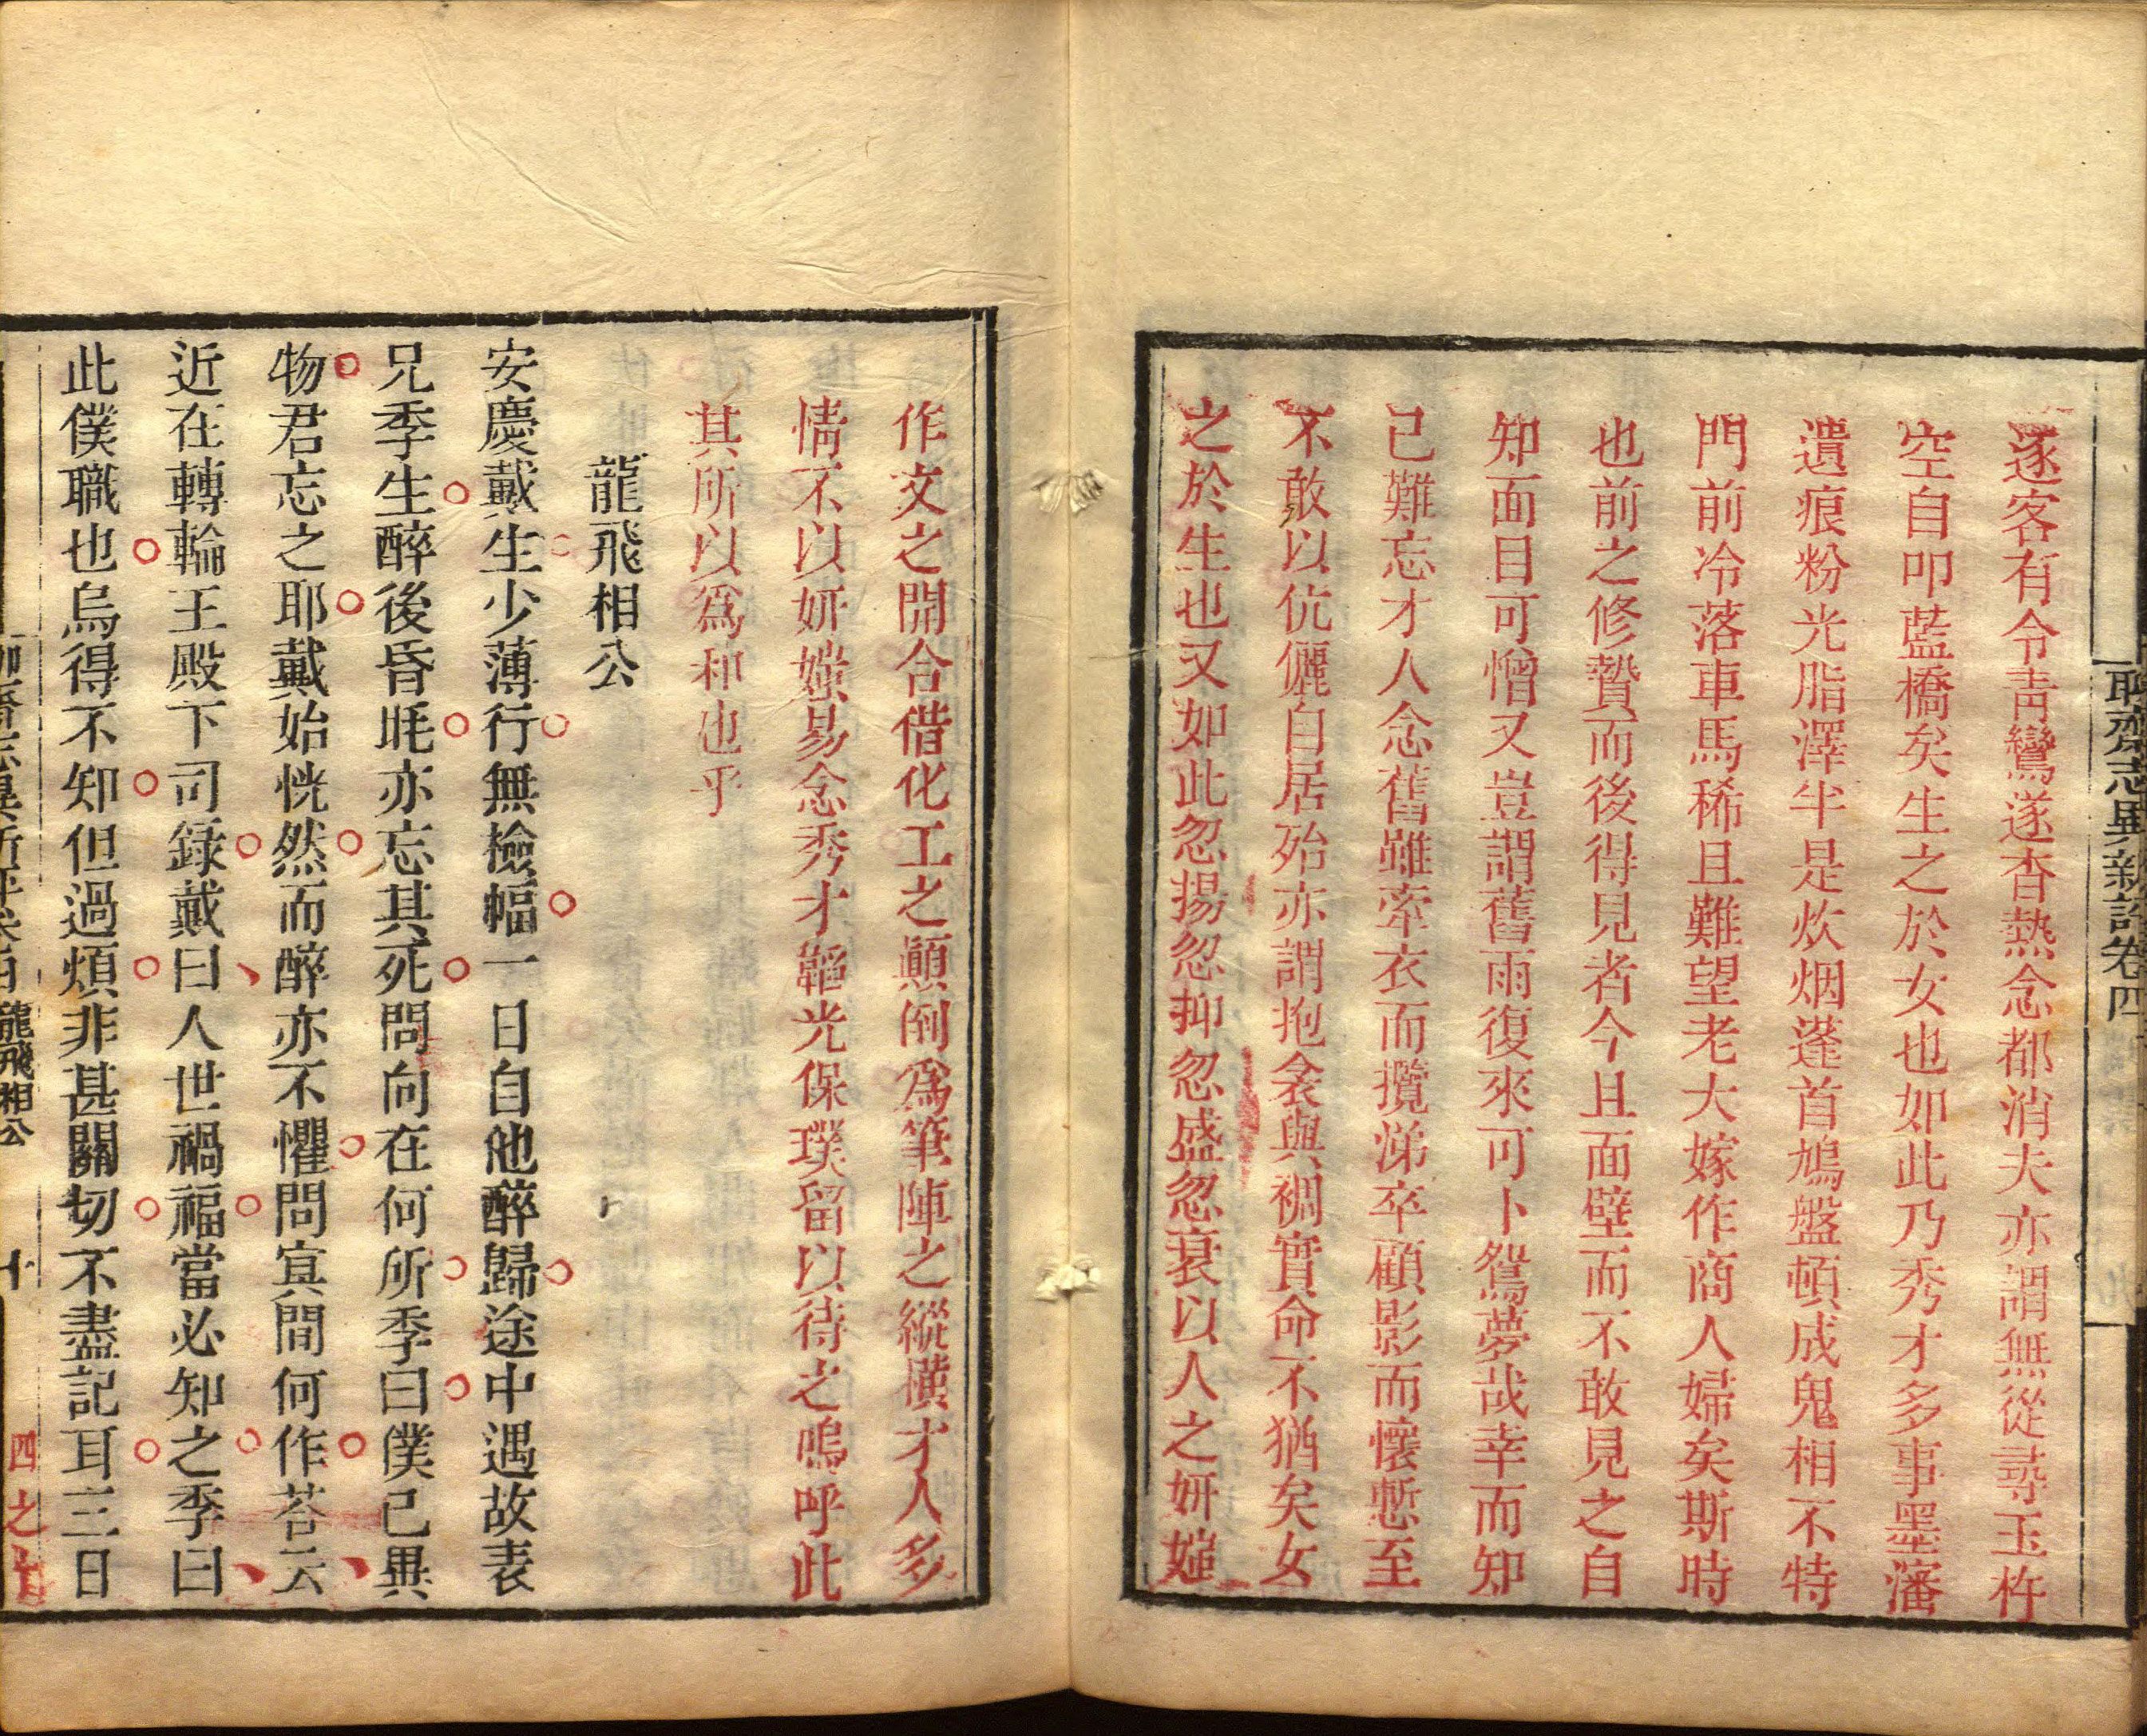 聊齋志異新評卷四
逐客有令青鸞遂杳熱念都消夫亦謂無從尋玉杵
空自叩藍橋矣生之於女也如此乃秀才多事墨瀋
遺痕粉光脂澤半是炊烟蓬首鳩盤頓成鬼相不特
門前冷落車馬稀且難望老大嫁作商人婦矣斯時
也前之修贄而後得見者今且面壁而不敢見之自
知面目可憎又豈謂舊雨復來可卜鴛夢哉幸而知
己難忘才人念舊雖牽衣而攬涕卒顧影而懷慙至
不敢以伉儷自居殆亦謂抱衾與裯實命不猶矣女
之於生也又如此忽揚忽抑忽盛忽衰以人之妍媸
作文之開合借化工之顛倒爲筆陣之縱橫才人多
情不以妍媸易念秀才韜光保璞留以待之嗚呼此
其所以爲和也乎
龍飛相公
安慶戴生少薄行無檢幅一日自他醉歸途中遇故表
兄季生醉後昏眊亦忘其死問向在何所季曰僕已異
物君忘之耶戴始恍然而醉亦不懼問冥間何作荅云
近在轉輪王殿下司錄戴曰人世禍福當必知之季曰
此僕職也烏得不知但過煩非甚關切不盡記耳三日
聊齋志異新評卷四 龍飛相公
十
四之七